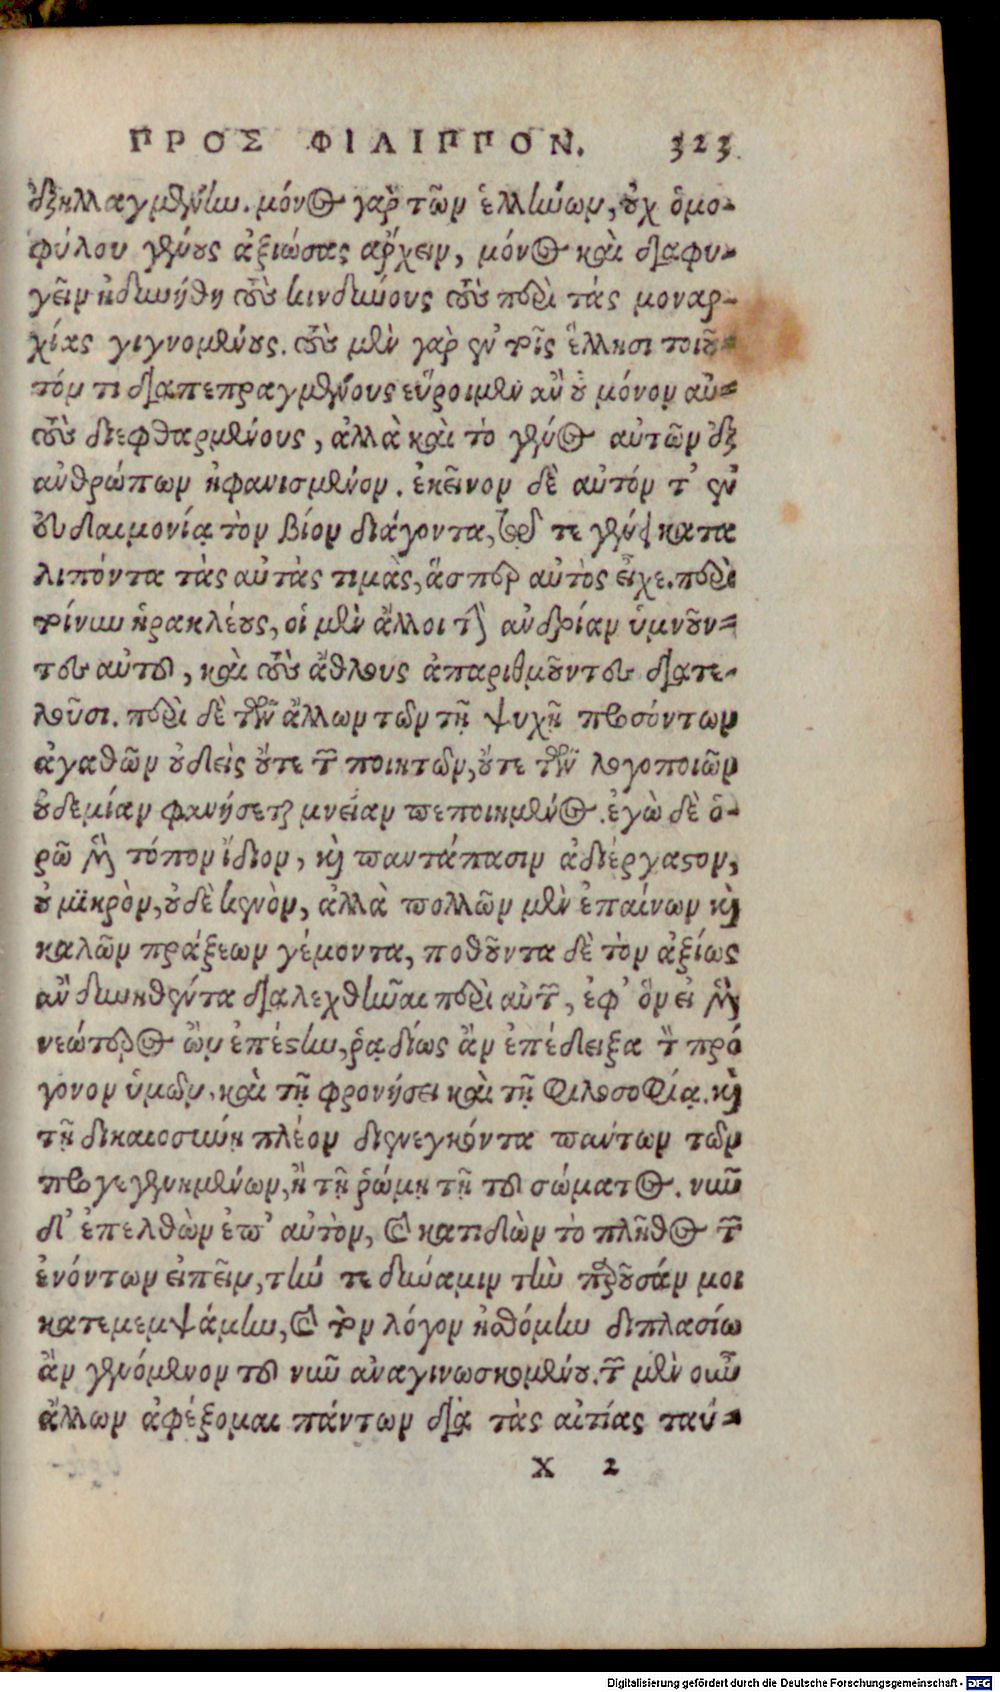 ΠΡΟΣ ΦΙΛΙΠΠΟΝ. 323
ἐξηλλαγμένην. μόνος γὰρ τῶν ἑλλήνων, οὐχ ὁμο-
φύλου γένους ἀξιώσας ἄρχειν, μόνος καὶ διαφυ-
γεῖν ἠδυνήθη τοὺς κινδύνους τοὺς περὶ τὰς μοναρ-
χίας γιγνομένους. τοὺς μὲν γὰρ ἐν τοῖς ἕλλησι τοιοῦ-
τόν τι διαπεπραγμένους εὕροιμεν ἂν οὐ μόνον αὐ-
τοὺς διεφθαρμένους, ἀλλὰ καὶ τὸ γένος αὐτῶν ἐξ
ἀνθρώπων ἠφανισμένον. ἐκεῖνον δὲ αὐτόν τ' ἐν
εὐδαιμονίᾳ τὸν βίον διάγοντα, τῷ τε γένει κατα
λιπόντα τὰς αὐτὰς τιμὰς, ἅσπερ αὐτὸς εἶχε. περὶ
τοίνυν ἡρακλέους, οἱ μὲν ἄλλοι τὴν ἀνδρίαν ὑμνοῦν-
τες αὐτοῦ, καὶ τοὺς ἄθλους ἀπαριθμοῦντες διατε-
λοῦσι. περὶ δὲ τῶν ἄλλων τῶν τῇ ψυχῇ προσόντων
ἀγαθῶν οὐδεὶς οὔτε τῶν ποιητῶν, οὔτε τῶν λογοποιῶν
οὐδεμίαν φανήσεται μνείαν πεποιημένος. ἐγὼ δὲ ὁ-
ρῶ μὲν τόπον ἴδιον, καὶ παντάπασιν ἀδιέργαστον,
οὐ μικρὸν, οὐδὲ κενὸν, ἀλλὰ πολλῶν μὲν ἐπαίνων καὶ
καλῶν πράξεων γέμοντα, ποθοῦντα δὲ τὸν ἀξίως
ἂν δυνηθέντα διαλεχθῆναι περὶ αὐτῶν, ἐφ' ὃν εἰ μὲν
νεώτερος ὢν ἐπέστην, ῥᾳδίως ἂν ἐπέδειξα τὸν πρό
γονον ὑμῶν, καὶ τῇ φρονήσει καὶ τῇ φιλοσοφίᾳ. καὶ
τῇ δικαιοσύνῃ πλέον διενεγκόντα πάντων τῶν
προγεγενημένων, ἢ τῇ ῥώμῃ τῇ τοῦ σώματος. νῦν
δ' ἐπελθὼν ἐπ' αὐτὸν, καὶ κατιδὼν τὸ πλῆθος τῶν
ἐνόντων εἰπεῖν, τήν τε δύναμιν τὴν παροῦσάν μοι
κατεμεμψάμην, καὶ τὸν λόγον ᾐσθόμην διπλασίω
ἂν γενόμενον τοῦ νῦν ἀναγινωσκομένου. τῶν μὲν οὖν
ἄλλων ἀφέξομαι πάντων διὰ τὰς αἰτίας ταύ-
X 2
Digitalisierung gefördert durch die Deutsche Forschungsgemeinschaft - DFG